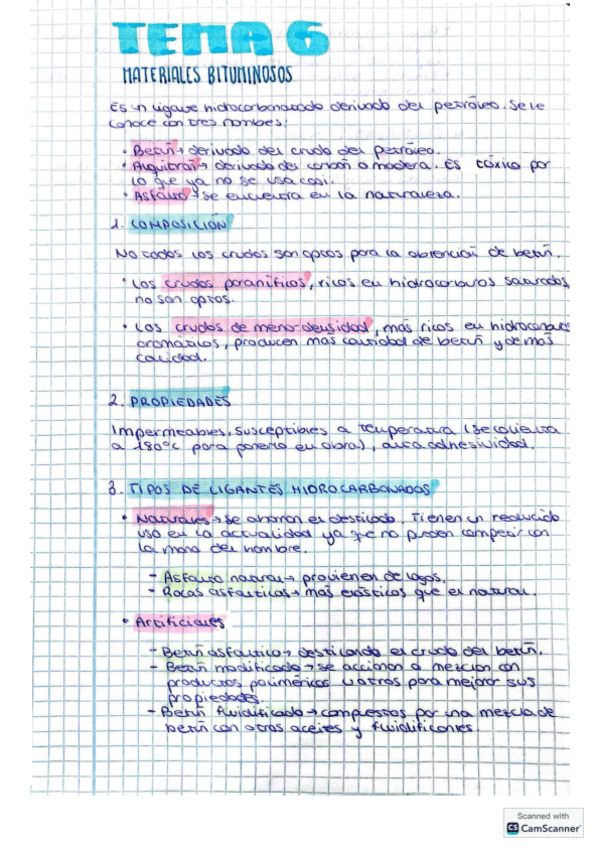 TEMA 6
MATERIALES BITUMINOSOS
Es un ligante hidrocarbonatado derivado del petróleo. Se le
conoce con tres nombres:
• Betún → derivado del crudo del petróleo.
• Alquitrán → derivado del carbón o madera. Es tóxico por
lo que ya no se usa casi.
• Asfalto → se encuentra en la naturaleza.
1. COMPOSICIÓN
No todos los crudos son aptos para la obtención de betún.
• Los crudos paraníficos, ricos en hidrocarburos saturados,
no son aptos.
• Los crudos de menor densidad, más ricos en hidrocarburos
aromáticos, producen más cantidad de betún y de más
calidad.
2. PROPIEDADES
Impermeables, susceptibles a temperatura (se calienta
a 180ºC para ponerlo en obra), alta adhesividad.
3. TIPOS DE LIGANTES HIDROCARBONADOS
• Naturales → se ahorran el destilado. Tienen un reducido
uso en la actualidad ya que no pueden competir con
la mano del hombre.
- Asfalto natural → provienen de lagos.
- Rocas asfálticas → más elásticos que el natural.
• Artificiales
- Betún asfáltico → destilando el crudo del betún.
- Betún modificado → se accionan o mezclan con
productos poliméricos u otros para mejorar sus
propiedades.
- Betún fluidificado → compuestos por una mezcla de
betún con otros aceites y fluidificantes.
Scanned with
CS CamScanner